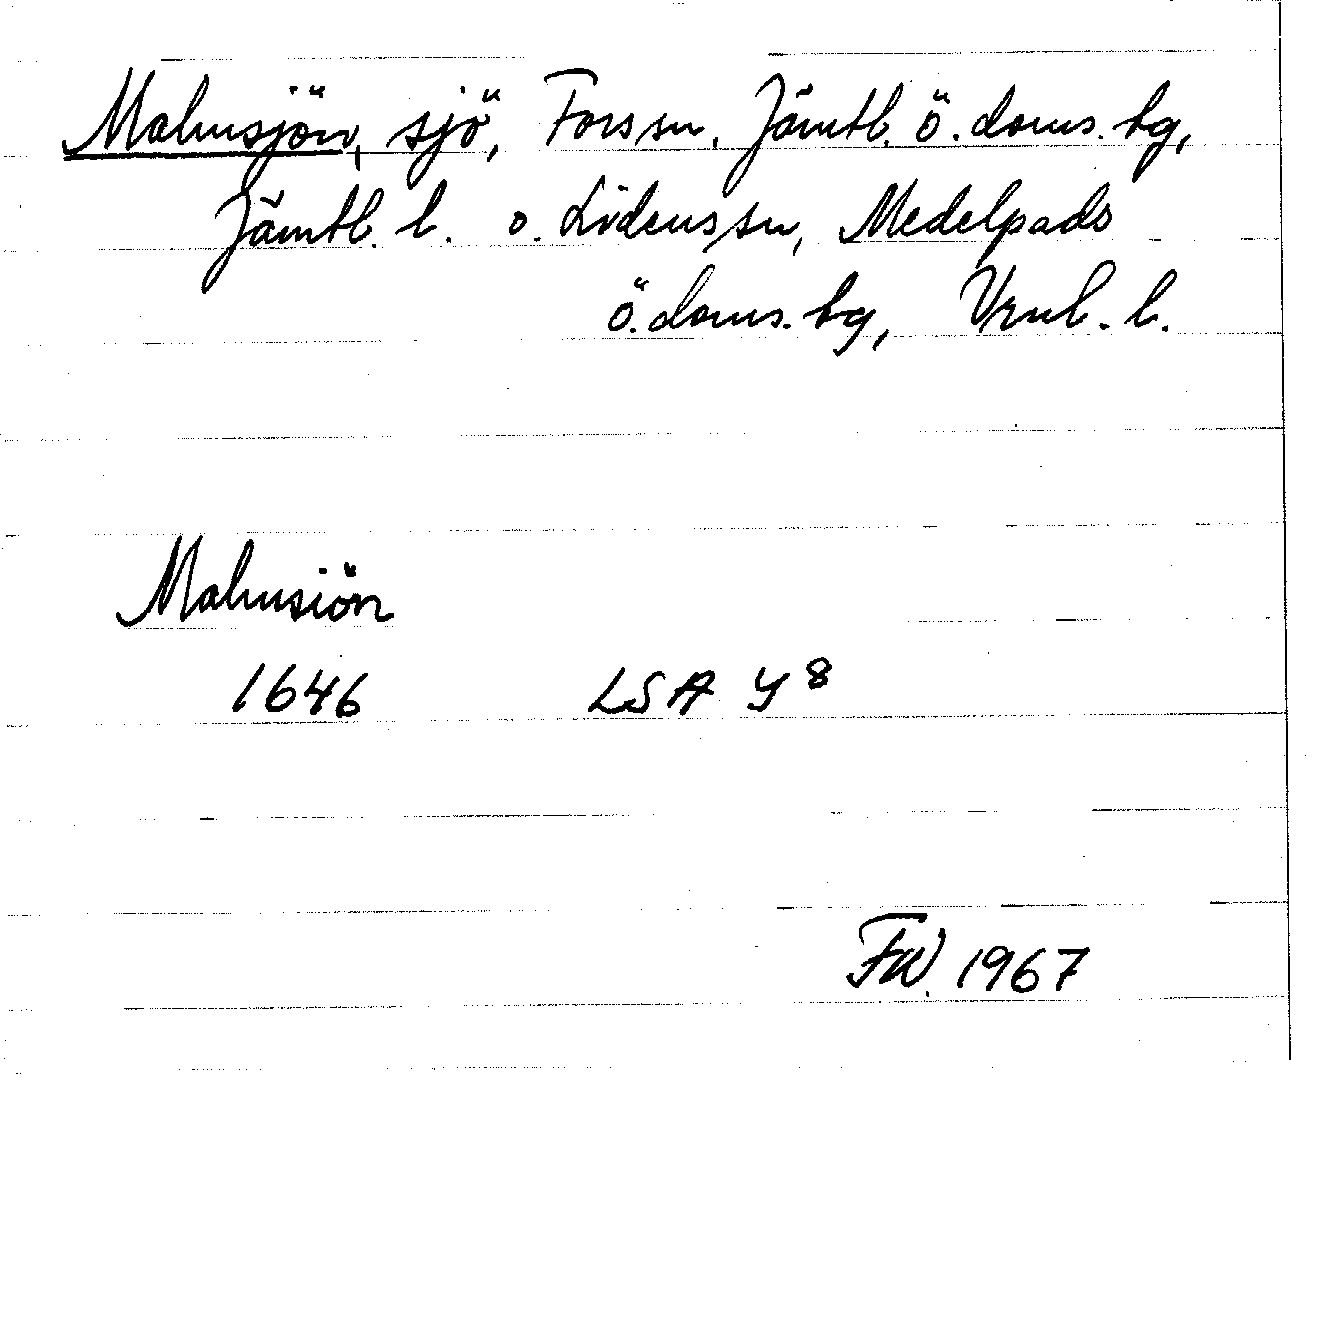 Malmsjön, sjö, Fors sn. Jämtl. ö. doms. hg,
Jämtl. l. o. Lidens sn, Medelpads
ö. doms. hg, Vrnl. l.
Malmsiön
1646 LSA Y 8
FW. 1967